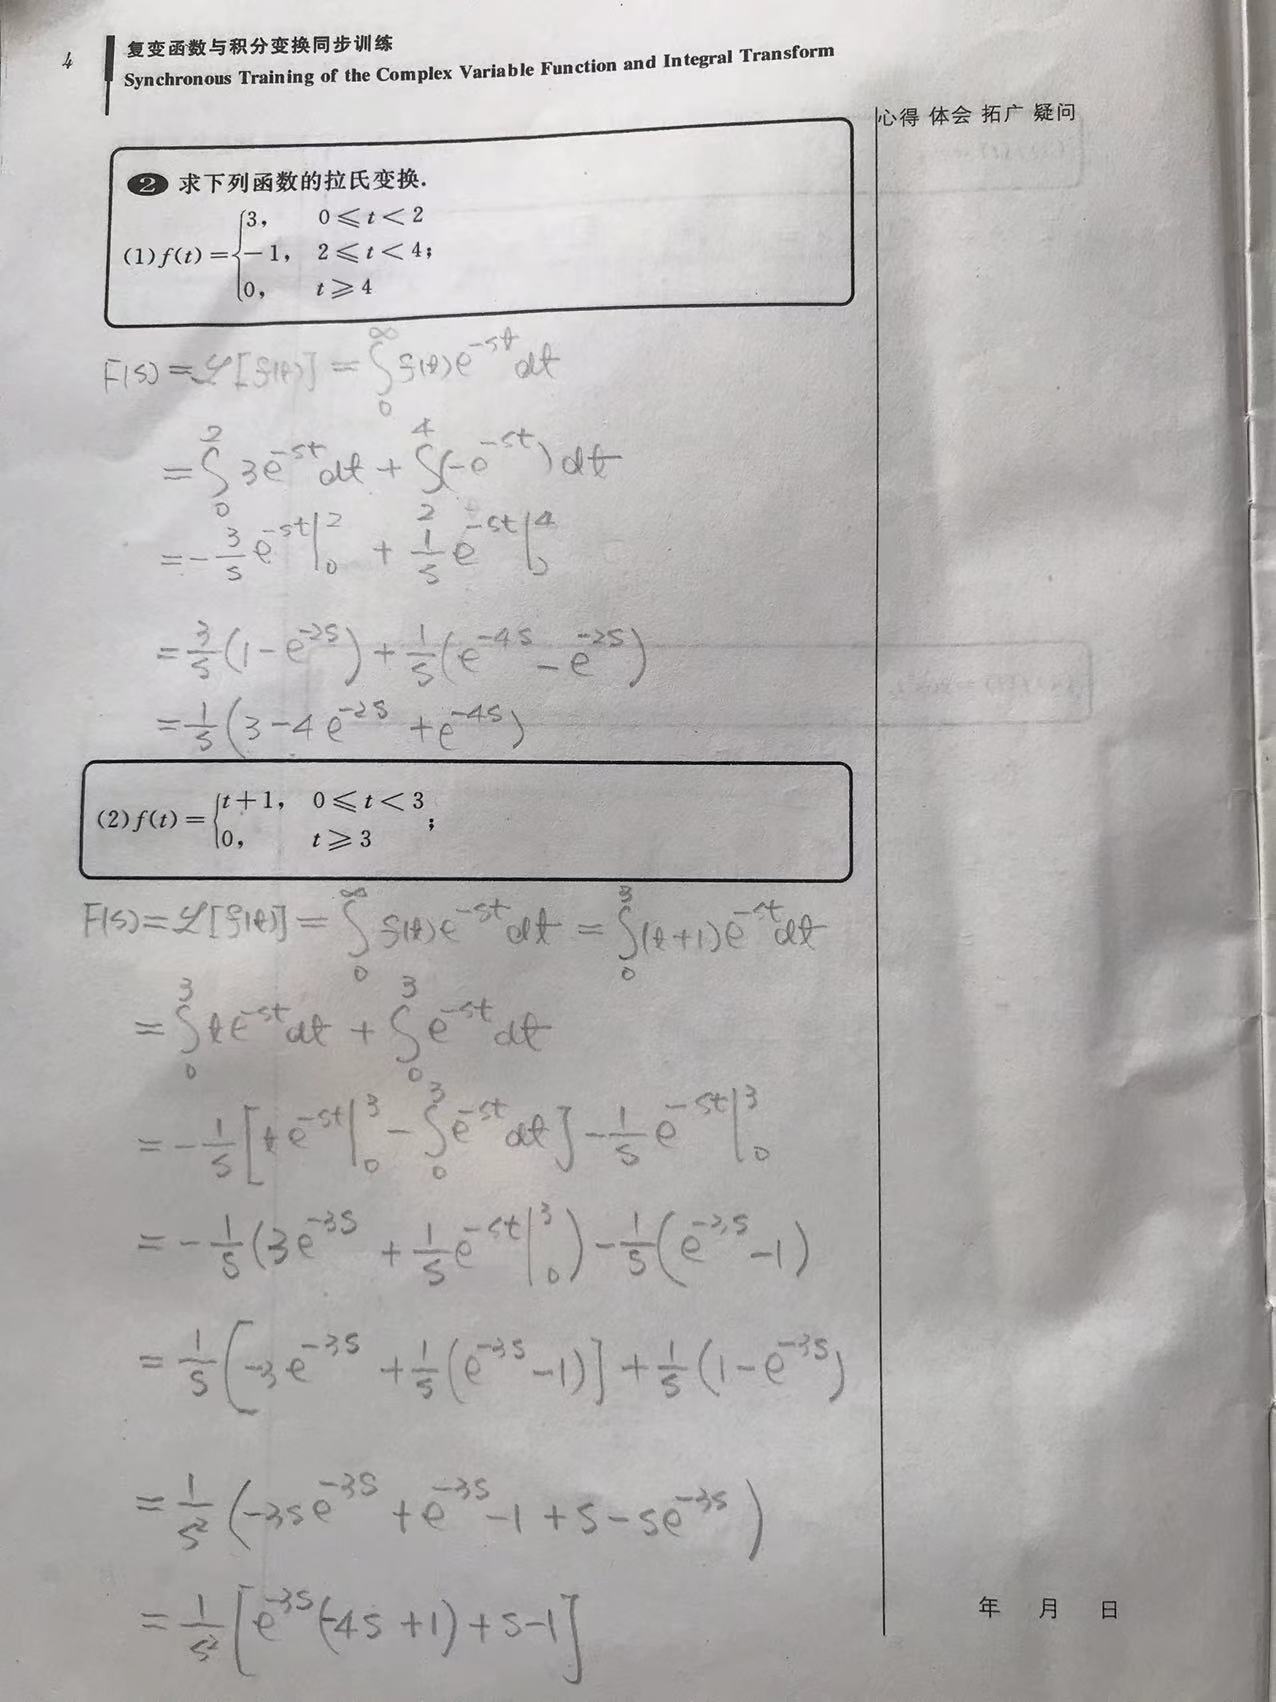 4
复变函数与积分变换同步训练
Synchronous Training of the Complex Variable Function and Integral Transform
心得 体会 拓广 疑问
❷ 求下列函数的拉氏变换.
(1) f(t) = { 3, 0 ⩽ t < 2
−1, 2 ⩽ t < 4;
0, t ⩾ 4
F(s) = ℒ[f(t)] = ∫₀^∞ f(t)e^{-st}dt
= ∫₀² 3e^{-st}dt + ∫₂⁴ (-e^{-st})dt
= -3/s e^{-st}|₀² + 1/s e^{-st}|₂⁴
= 3/s (1 - e^{-2s}) + 1/s (e^{-4s} - e^{-2s})
= 1/s (3 - 4e^{-2s} + e^{-4s})
(2) f(t) = { t+1, 0 ⩽ t < 3
0, t ⩾ 3 ;
F(s) = ℒ[f(t)] = ∫₀^∞ f(t)e^{-st}dt = ∫₀³ (t+1)e^{-st}dt
= ∫₀³ te^{-st}dt + ∫₀³ e^{-st}dt
= -1/s [te^{-st}|₀³ - ∫₀³ e^{-st}dt] - 1/s e^{-st}|₀³
= -1/s (3e^{-3s} + 1/s e^{-st}|₀³) - 1/s (e^{-3s} - 1)
= 1/s [-3e^{-3s} + 1/s (e^{-3s} - 1)] + 1/s (1 - e^{-3s})
= 1/s² (-3se^{-3s} + e^{-3s} - 1 + s - se^{-3s})
= 1/s² [e^{-3s}(-4s + 1) + s - 1]
年 月 日